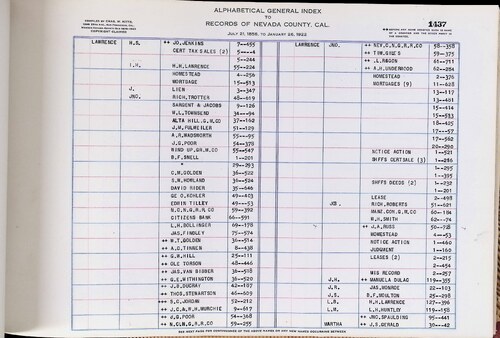 ALPHABETICAL GENERAL INDEX
TO
RECORDS OF NEVADA COUNTY, CAL.
JULY 21, 1856, TO JANUARY 26, 1922
1437
COPYRIGHT CLAIMED
LAWRENCE H.S. ++ JO. JENKINS 7--455
CERT TAX SALES (2) 5----4
5--244
I.H. W.H. LAWRENCE 55--224
HOMESTEAD 4--256
MORTGAGE 15--513
J. LIEN 3--347
JNO. RICH. TROTTER 48--619
SARGENT & JACOBS 9--126
W.L. TOWNSEND 34--94
ALTA HILL G.M.CO 37--162
J.M. FULWEILER 51--129
A.R. WADSWORTH 55--95
J.G. POOR 54--378
WIND UP GR.M.CO 55--547
B.F. SNELL 1--201
29--293
C.M. GOLDEN 36--522
S.N. HOWLAND 36--524
DAVID RIDER 35--646
GEO. KOHLER 49--423
EDWIN TILLEY 49--53
N.C.N.G.R.R CO 59--392
CITIZENS BANK 66--591
L.H. BOLLINGER 69--178
JAS. FINDLEY 75--574
++ W.T. GOLDEN 36--514
++ A.C. TINGEN 8--438
++ G.W. HILL 25--111
++ OLE TORSON 48--446
++ JAS. VAN BIBBER 36--518
++ G.E. WITHINGTON 36--520
++ J.B. DUCRAY 42--187
++ THOS. STEWARTSON 46--609
++ S.C. JORDAN 52--212
++ J.C.& W.H. MURCHIE 9--617
++ J.G. POOR 54--368
++ N.C.N.G.R.R CO 59--255
LAWRENCE JNO. ++ NEV.C.N.G.R.R.CO 58--358
++ TIM. GILES 59--375
++ L.L. RAGON 61--711
++ A.H. UNDERWOOD 62--284
HOMESTEAD 2--376
MORTGAGES (9) 11--628
13--117
13--481
15--414
15--583
18--405
17--57
17--562
20--290
NOTICE ACTION 1--521
SHFFS CERT SALE (3) 1--286
1--295
1--395
SHFFS DEEDS (2) 1--232
1--201
LEASE 2--498
JOS. RICH. ROBERTS 51--621
MANZ. CON. G.M.CO 60--184
W.H. SMITH 62--74
++ J.A. RUSS 50--528
HOMESTEAD 4--53
NOTICE ACTION 1--460
JUDGMENT 1--160
LEASES (2) 2--215
2--454
MISC RECORD 2--257
J.H. ++ MANUELA DULAC 119--355
J.R. JAS. MONROE 22--103
J.S. B.F. MOULTON 25--298
L.B. H.H. LAWRENCE 127--396
L.W. L.H. HUNTLEY 119--155
++ JNO. SPAULDING 95--441
MARTHA ++ J.S. GERALD 30--42